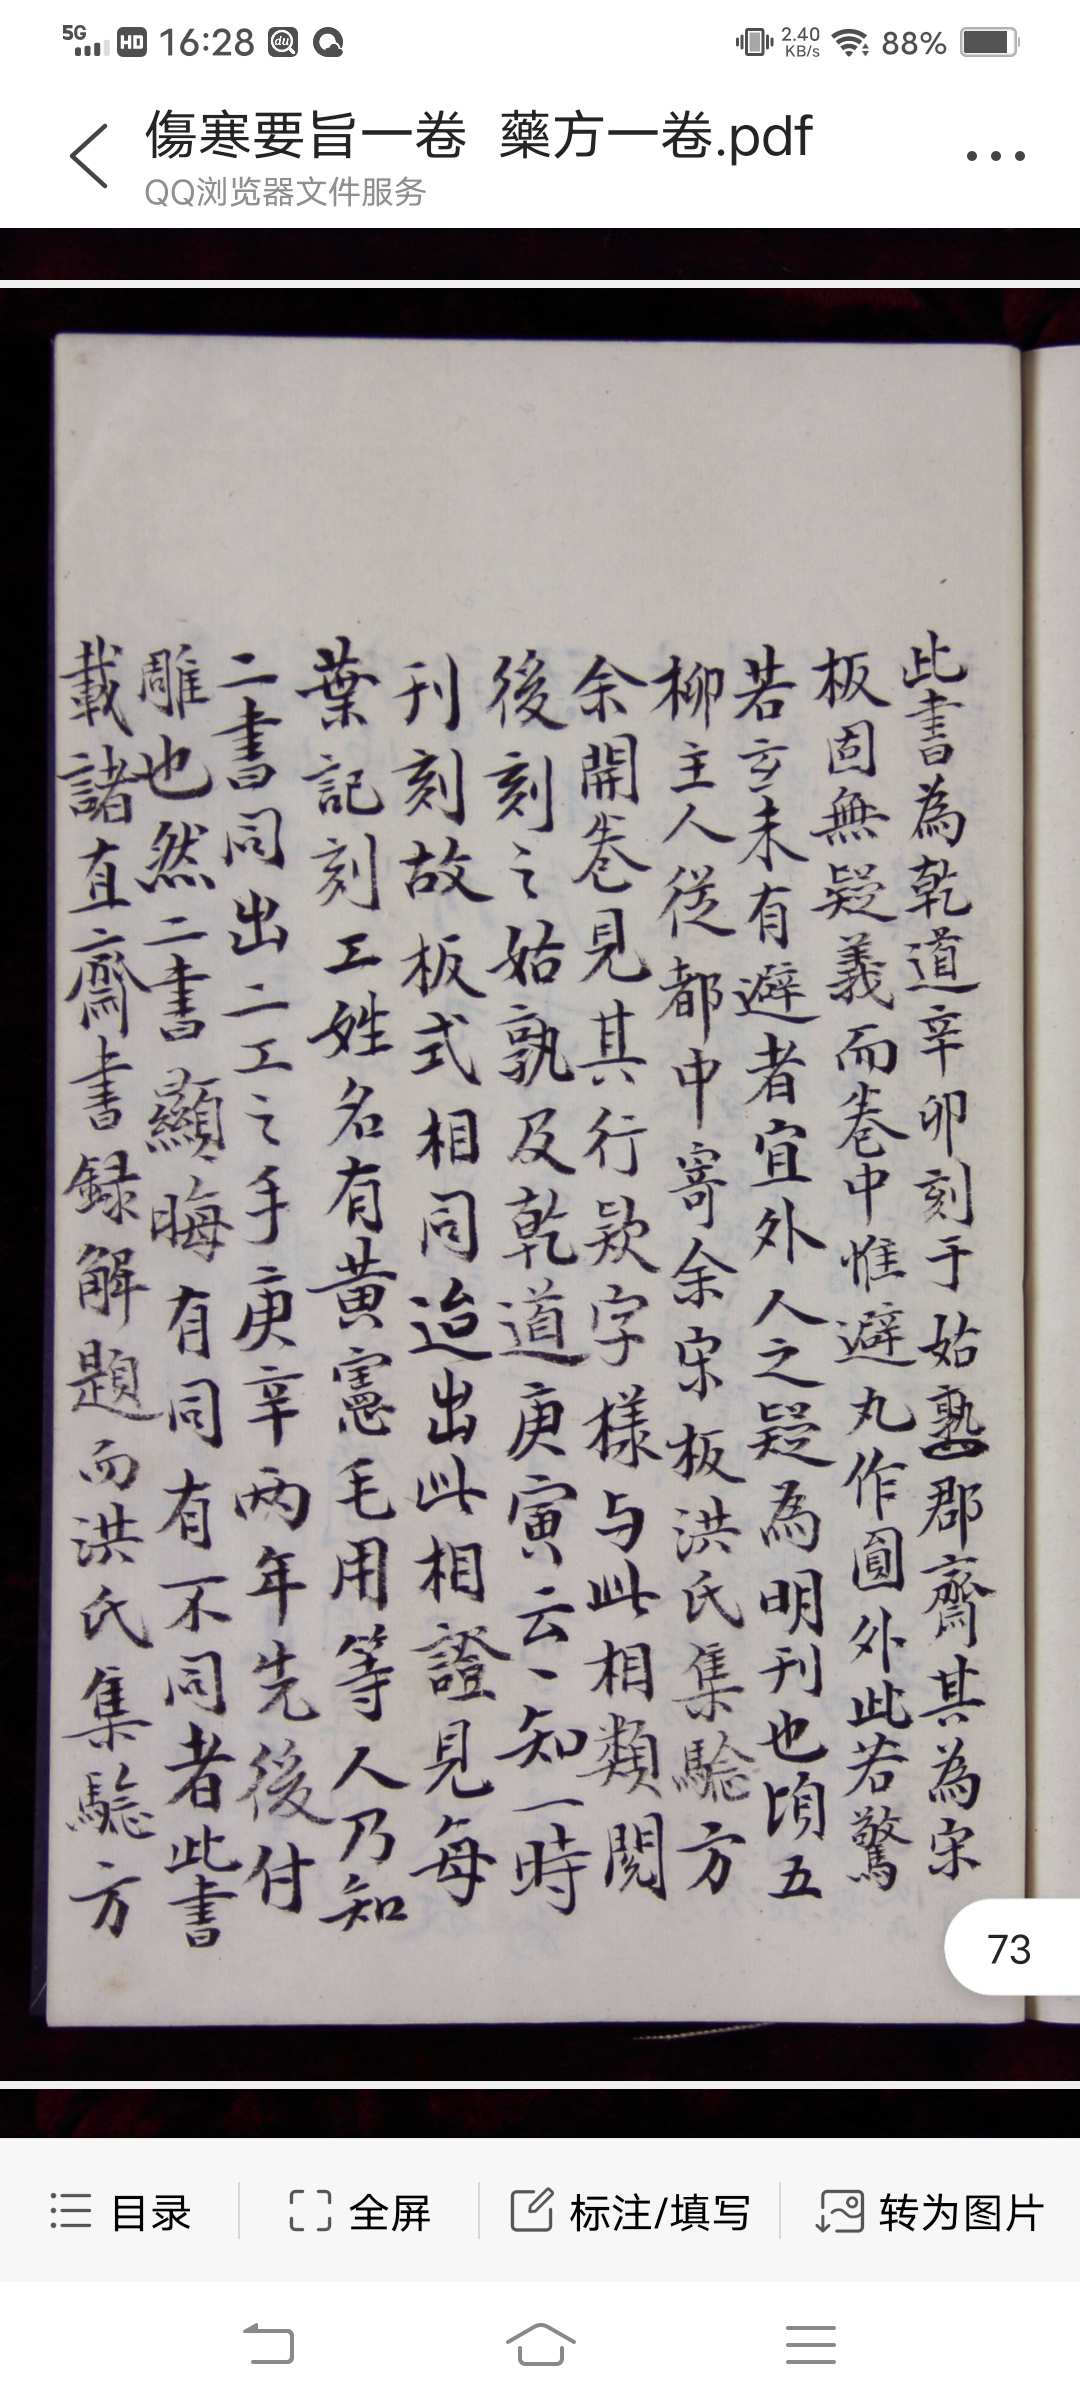 5G HD 16:28 2.40 KB/s 88%
傷寒要旨一卷 藥方一卷.pdf
QQ浏览器文件服务
此書為乾道辛卯刻于姑孰郡齋其為宋
板固無疑義而卷中惟避丸作圓外此若驚
若玄未有避者宜外人之疑為明刊也頃五
柳主人從都中寄余宋板洪氏集驗方
余開卷見其行欵字樣与此相類閱
後刻之姑孰及乾道庚寅云〻知一時
刊刻故板式相同迨出此相證見每
葉記刻工姓名有黃憲毛用等人乃知
二書同出二工之手庚辛两年先後付
雕也然二書顯晦有同有不同者此書
載諸直齋書録解題而洪氏集驗方
73
目录 全屏 标注/填写 转为图片